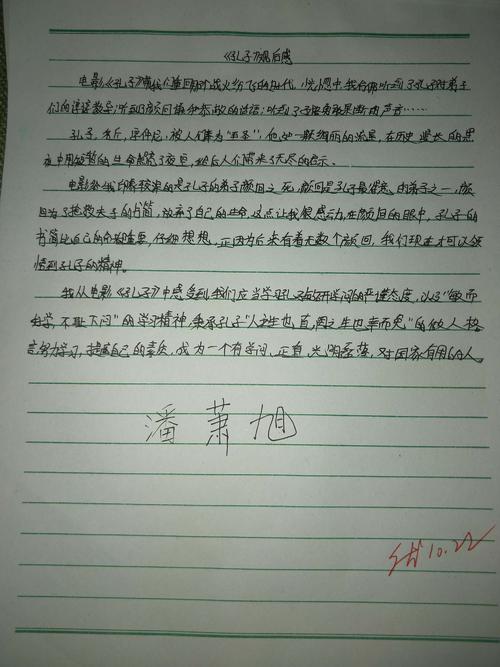 《孔子》观后感
电影《孔子》带我们重回那战火纷飞的时代,恍惚中我仿佛听到了孔子对弟子
们的谆谆教导;听到了颜回的话语;听到了声音……
孔子,名丘,字仲尼,被人们尊为“圣”,他如一颗绚丽的流星,在历史漫长的黑
夜中用短暂的生命照亮了夜空,给后人们带来了无尽的启示。
电影给我印象较深的是孔子的弟子颜回之死,颜回是孔子最得意的弟子之一,颜
回为了抢救夫子的书简,放弃了自己的生命,这点让我很感动,在颜回的眼中,孔子的
书简比自己的命都重要,仔细想想,正因为后来有着无数个颜回,我们现在才可以领
悟到孔子的精神。
我从电影《孔子》中感受到,我们应当学习孔子做学问的严谨态度,以及“敏而
好学,不耻下问”的学习精神,秉承孔子“人之生也直,罔之生也幸而免”的做人格
言,努力学习,提高自己的素质,成为一个有学问,正直,光明磊落,对国家有用的人。
潘萧旭
10.22